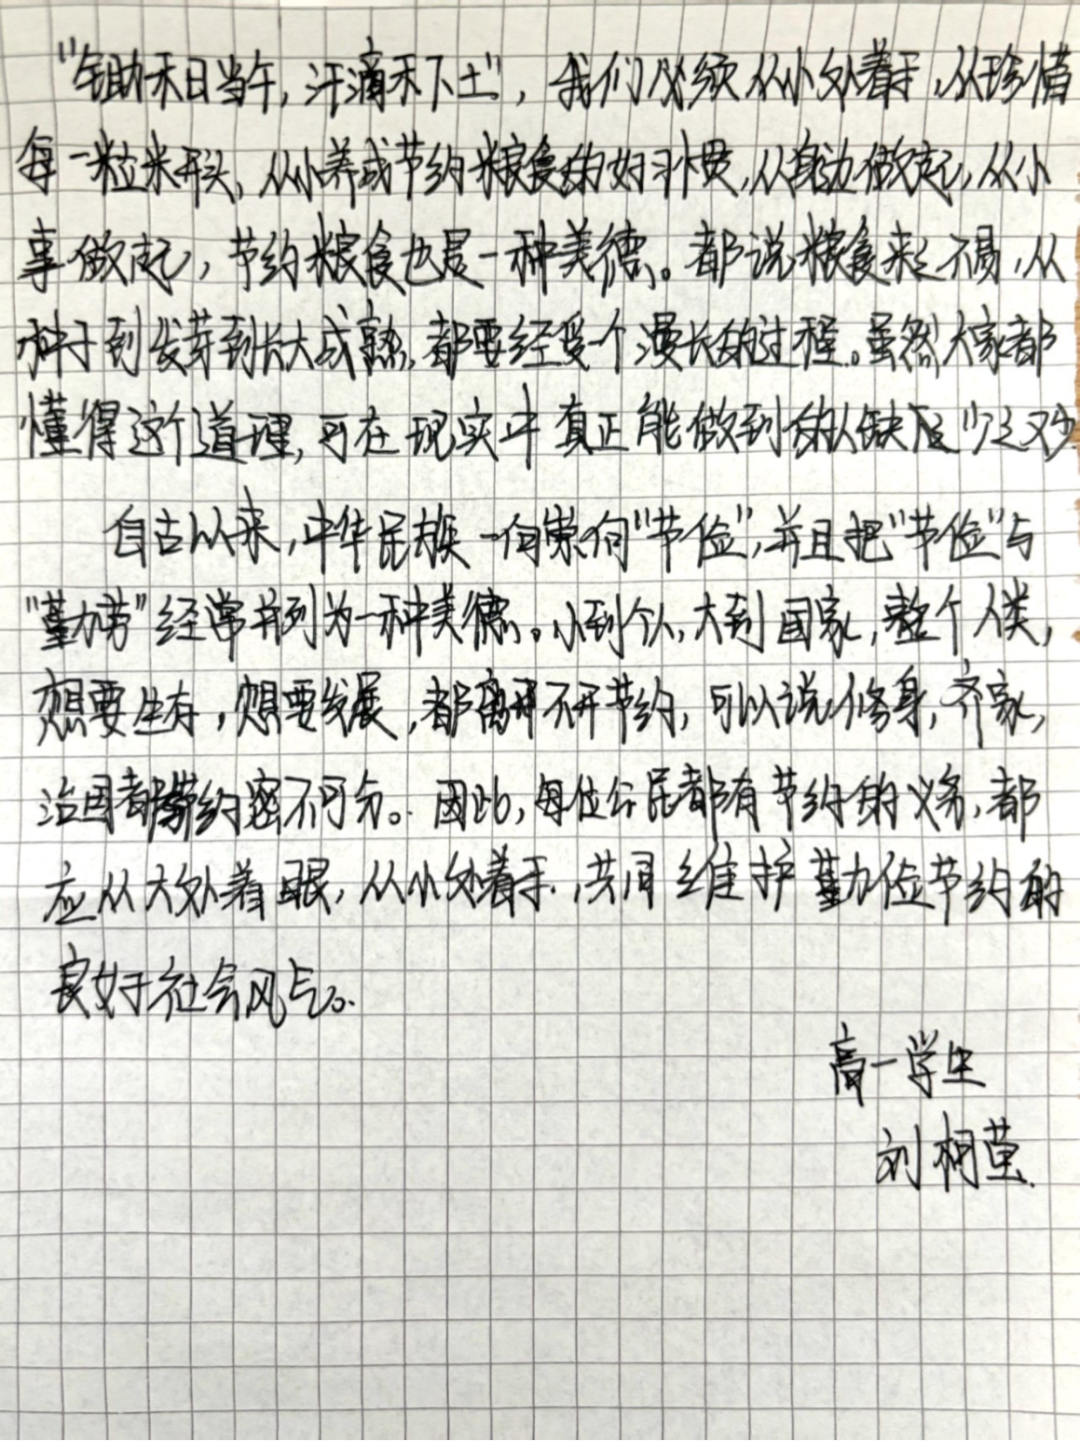 “锄禾日当午，汗滴禾下土”，我们必须从小处着手，从珍惜
每一粒米开头，从小养成节约粮食的好习惯，从身边做起，从小
事做起，节约粮食也是一种美德。都说粮食来之不易，从
种子到发芽到长大成熟，都要经受个漫长的过程。虽然大家都
懂得这个道理，可在现实中真正能做到的人缺乏少之又少
自古以来，中华民族一向崇尚“节俭”，并且把“节俭”与
“勤劳”经常并列为一种美德。小到个人，大到国家，整个人类，
想要生存，想要发展，都离开不开节约，可以说修身，齐家，
治国都与节约密不可分。因此，每位公民都有节约的义务，都
应从大处着眼，从小处着手，共同维护勤俭节约的
良好社会风气。
高一学生
刘柯萤